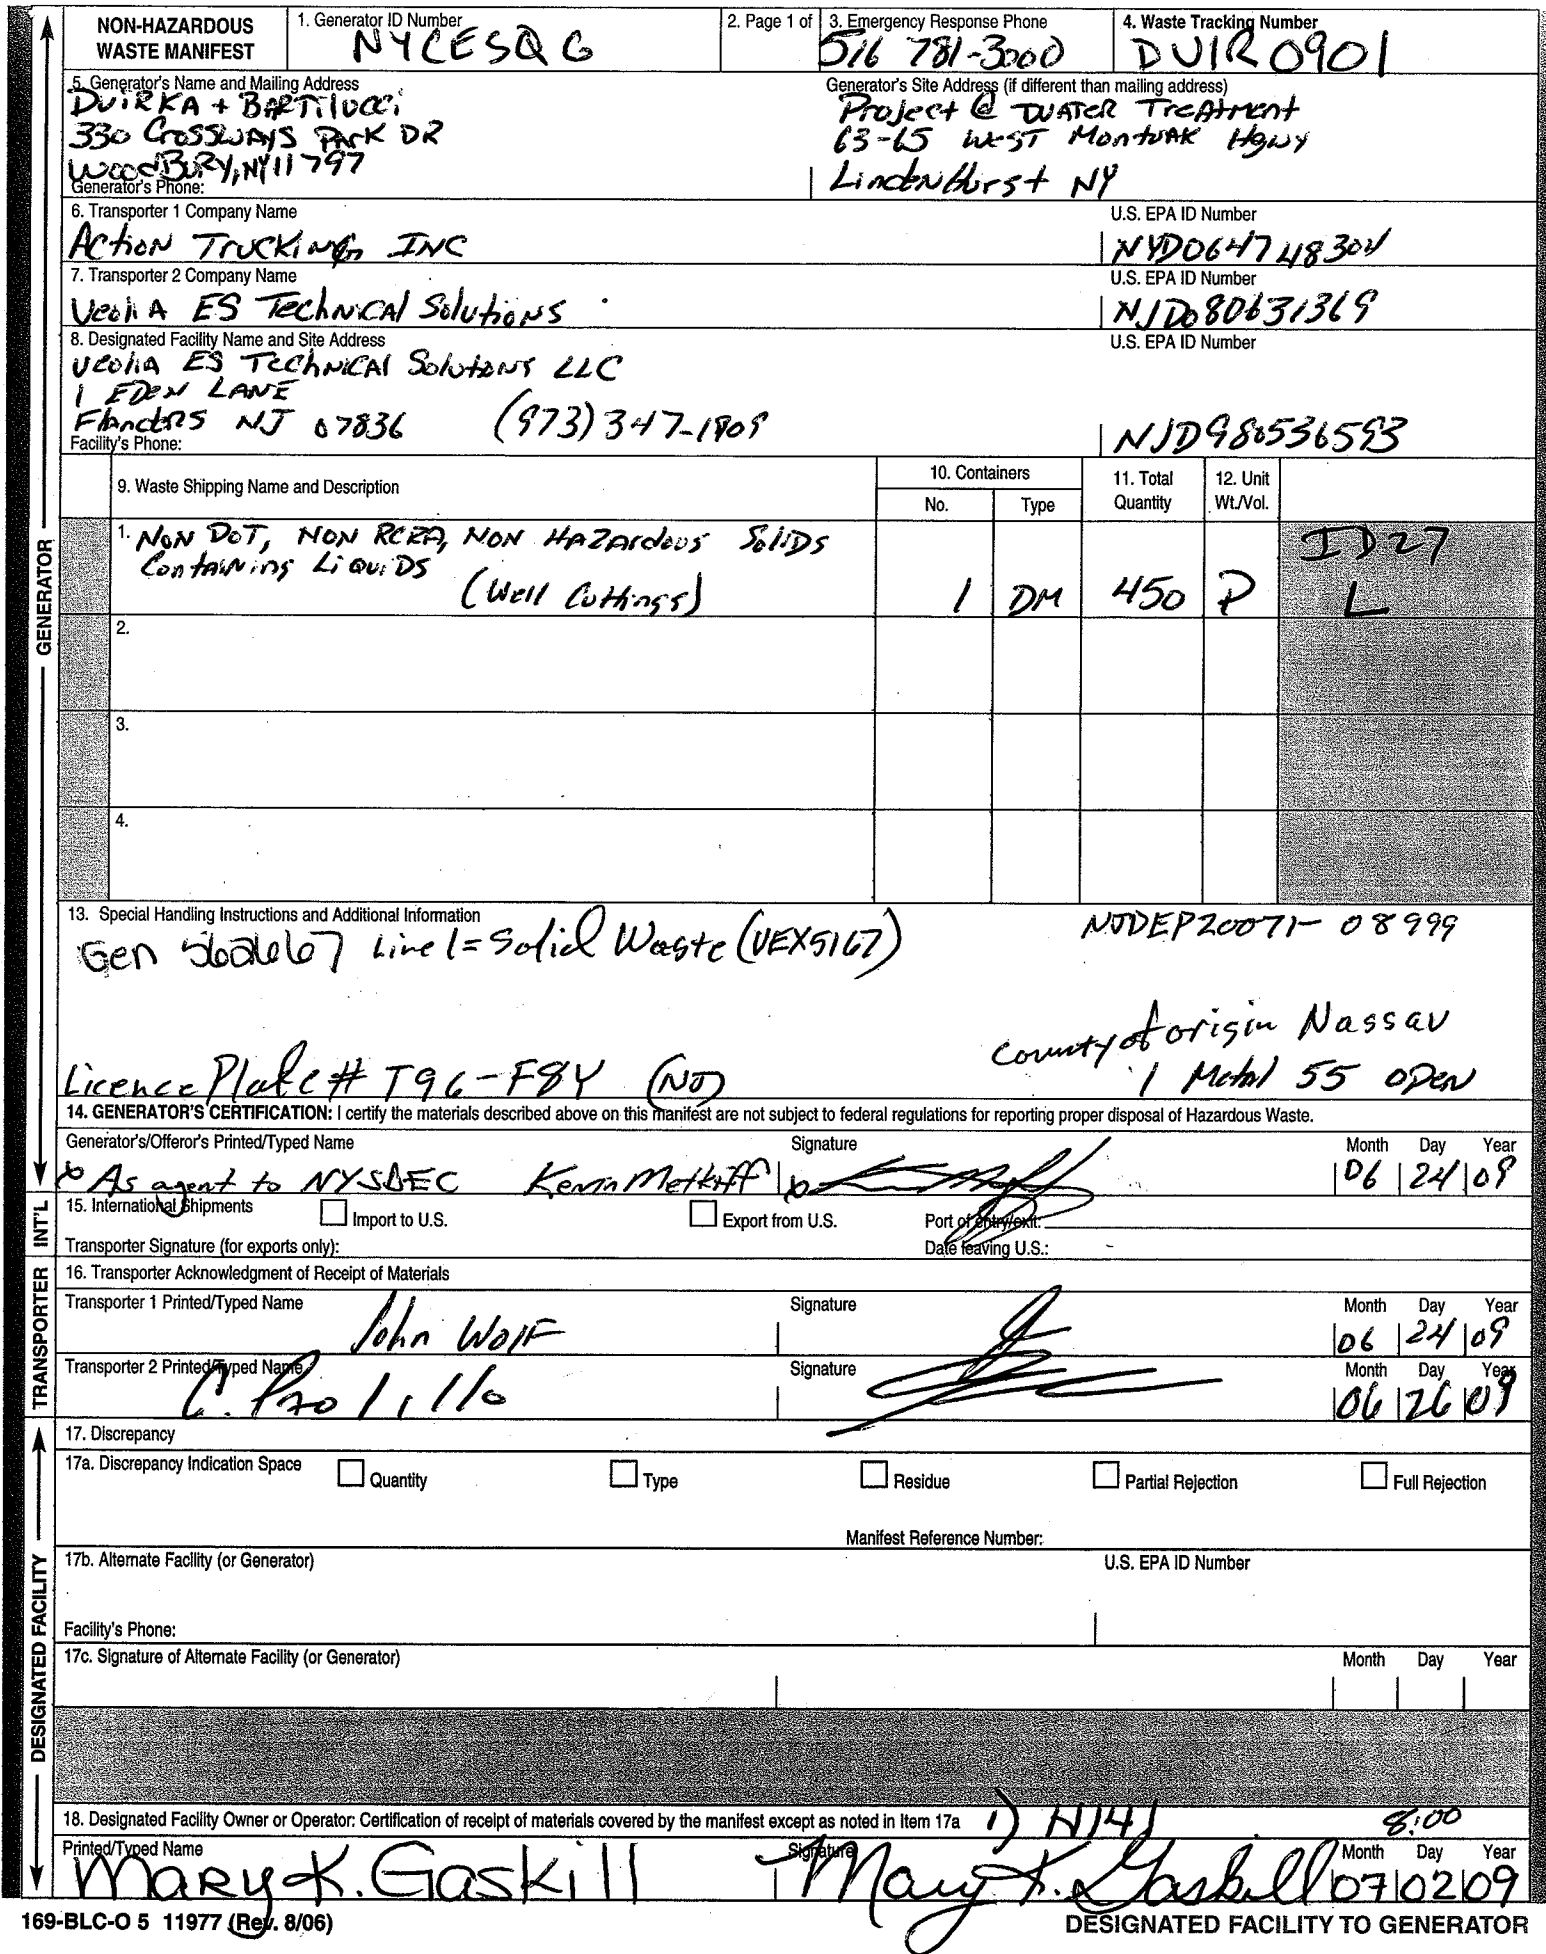 NON-HAZARDOUS WASTE MANIFEST
1. Generator ID Number
NYCESQG
2. Page 1 of
3. Emergency Response Phone
516 781-3000
4. Waste Tracking Number
DVIR0901
5. Generator's Name and Mailing Address
DviRKA + BARTILUCCi
330 CROSSWAYS PARK DR
WOODBURY, NY 11797
Generator's Phone:
Generator's Site Address (if different than mailing address)
Project @ WATER TreAtment
63-65 WEST MontVAK Hgwy
LindenHurst NY
6. Transporter 1 Company Name
ACtion TrucKing INC
U.S. EPA ID Number
NYD064748304
7. Transporter 2 Company Name
VeoliA ES TechNiCAl Solutions
U.S. EPA ID Number
NJD080631369
8. Designated Facility Name and Site Address
VeoliA ES TeChNiCAl Solutions LLC
1 EDEN LANE
FlAndeRS NJ 07836 (973) 347-1909
Facility's Phone:
U.S. EPA ID Number
NJD980536593
9. Waste Shipping Name and Description
10. Containers
No.
Type
11. Total Quantity
12. Unit Wt./Vol.
1. NON DOT, NON RCRA, NON HAZArdous SoliDS
ContAining LiQuiDS
(Well Cuttings)
1 DM 450 P
ID27
L
2.
3.
4.
13. Special Handling Instructions and Additional Information
Gen 562667 Line 1 = Solid Waste (VEX5167)
NJDEP20071- 08999
County of origin Nassau
Licence Plate # T96-F8Y (NJ)
1 Metal 55 OPEN
14. GENERATOR'S CERTIFICATION: I certify the materials described above on this manifest are not subject to federal regulations for reporting proper disposal of Hazardous Waste.
Generator's/Offeror's Printed/Typed Name
Signature
Month Day Year
As agent to NYSDEC Kevin Metkiff
06 24 09
15. International Shipments
Import to U.S.
Export from U.S.
Port of entry/exit:
Transporter Signature (for exports only):
Date leaving U.S.:
16. Transporter Acknowledgment of Receipt of Materials
Transporter 1 Printed/Typed Name
Signature
Month Day Year
John Wolf
06 24 09
Transporter 2 Printed/Typed Name
Signature
Month Day Year
C. Paolillo
06 26 09
17. Discrepancy
17a. Discrepancy Indication Space
Quantity
Type
Residue
Partial Rejection
Full Rejection
Manifest Reference Number:
17b. Alternate Facility (or Generator)
U.S. EPA ID Number
Facility's Phone:
17c. Signature of Alternate Facility (or Generator)
Month Day Year
18. Designated Facility Owner or Operator: Certification of receipt of materials covered by the manifest except as noted in Item 17a
1) H141
8:00
Printed/Typed Name
Signature
Month Day Year
MARY K. GasKill
Mary K. Gaskill
07 02 09
169-BLC-O 5 11977 (Rev. 8/06)
DESIGNATED FACILITY TO GENERATOR
GENERATOR
INT'L
TRANSPORTER
DESIGNATED FACILITY